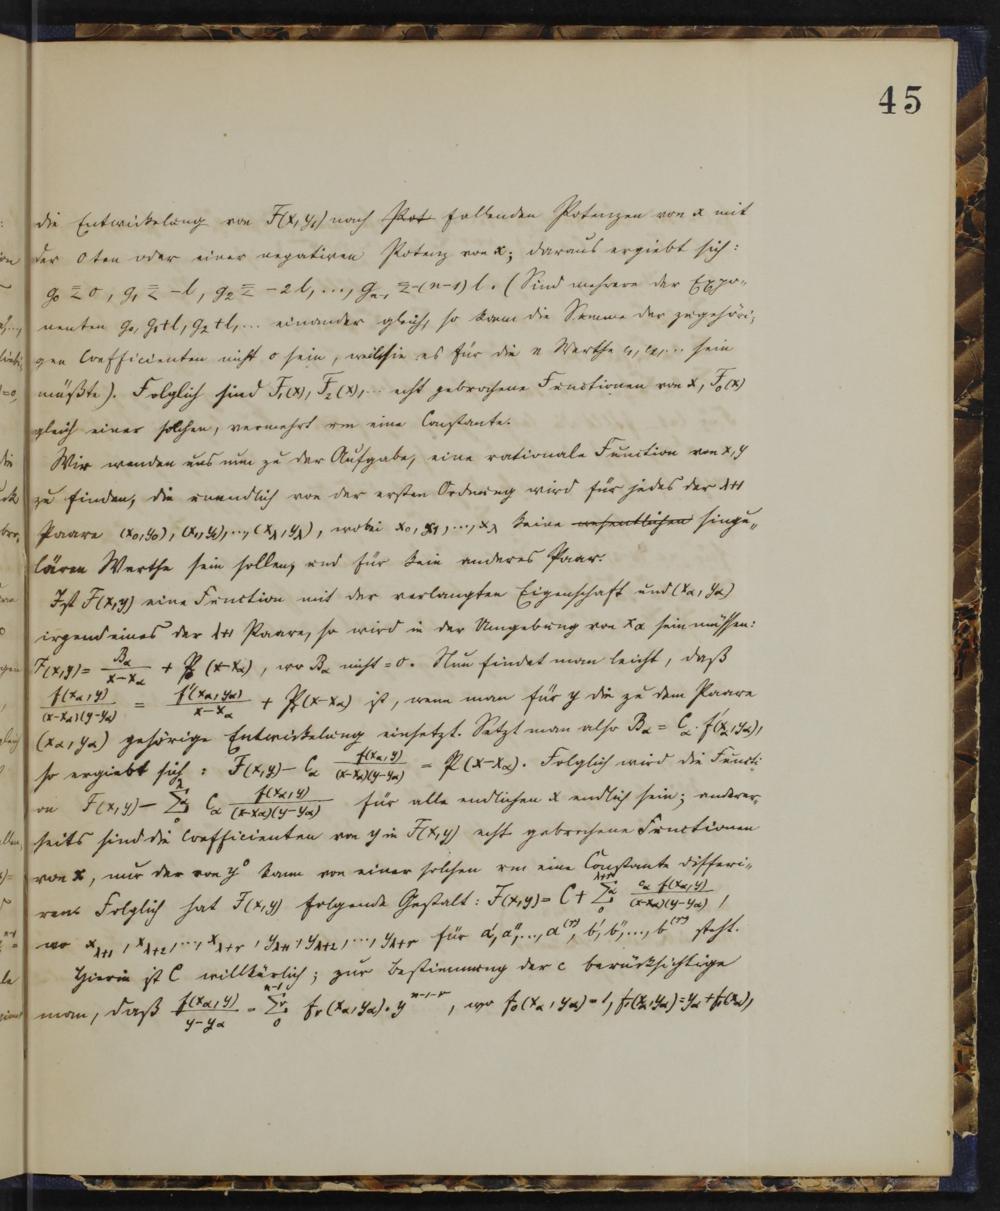 45
die Entwickelung von F(x,y₁) nach ~~Pot~~ fallenden Potenzen von x mit
der 0ten oder einer negativen Potenz von x; daraus ergiebt sich:
g₀ ≦ 0, g₁ ≦ -l, g₂ ≦ -2l, ..., gₙ₋₁ ≦ -(n-1)l. (Sind mehrere der Expo„
nenten g₀, g₁+l, g₂+l, ... einander gleich, so kann die Summe der zugehöri„
gen Coefficienten nicht 0 sein, weil sie es für die n Werthe c₁, c₂, ... sein
müßte). Folglich sind F₁(x), F₂(x), ... echt gebrochene Functionen von x, F₀(x)
gleich einer solchen, vermehrt um eine Constante.
Wir wenden uns nun zu der Aufgabe, eine rationale Function von x,y
zu finden, die unendlich von der ersten Ordnung wird für jedes der λ+1
Paare (x₀,y₀), (x₁,y₁), ..., (x_λ,y_λ), wobei x₀, x₁, ..., x_λ keine ~~wesentlichen~~ singu„
lären Werthe sein sollen, und für kein anderes Paar.
Ist F(x,y) eine Function mit der verlangten Eigenschaft und (x_α, y_α)
irgend eines der λ+1 Paare, so wird in der Umgebung von x_α sein müssen:
F(x,y) = B_α/(x-x_α) + P(x-x_α), wo B_α nicht = 0. Nun findet man leicht, daß
f(x_α,y)/((x-x_α)(y-y_α)) = f'(x_α,y_α)/(x-x_α) + P₁(x-x_α) ist, wenn man für y die zu dem Paare
(x_α,y_α) gehörige Entwickelung einsetzt. Setzt man also B_α = C_α·f'(x_α,y_α),
so ergiebt sich: F(x,y) - C_α f(x_α,y)/((x-x_α)(y-y_α)) = P(x-x_α). Folglich wird die Functi
on F(x,y) - Σ₀^λ C_α f(x_α,y)/((x-x_α)(y-y_α)) für alle endlichen x endlich sein; anderer„
seits sind die Coefficienten von y in F(x,y) echt gebrochene Functionen
von x, nur der von y⁰ kann von einer solchen um eine Constante differi„
ren. Folglich hat F(x,y) folgende Gestalt: F(x,y) = C + Σ₀^{λ+r} c_α f(x_α,y)/((x-x_α)(y-y_α)),
wo x_{λ+1}, x_{λ+2}, ..., x_{λ+r}, y_{λ+1}, y_{λ+2}, ..., y_{λ+r} für a', a'', ..., a^{(r)}, b', b'', ..., b^{(r)} steht.
Hierin ist C willkürlich; zur Bestimmung der c berücksichtige
man, daß f(x_α,y)/(y-y_α) = Σ₀^{n-1} f_ν(x_α,y_α)·y^{n-1-ν}, wo f₀(x_α,y_α) = 1, f₁(x_α,y_α) = y_α + f₁(x_α),